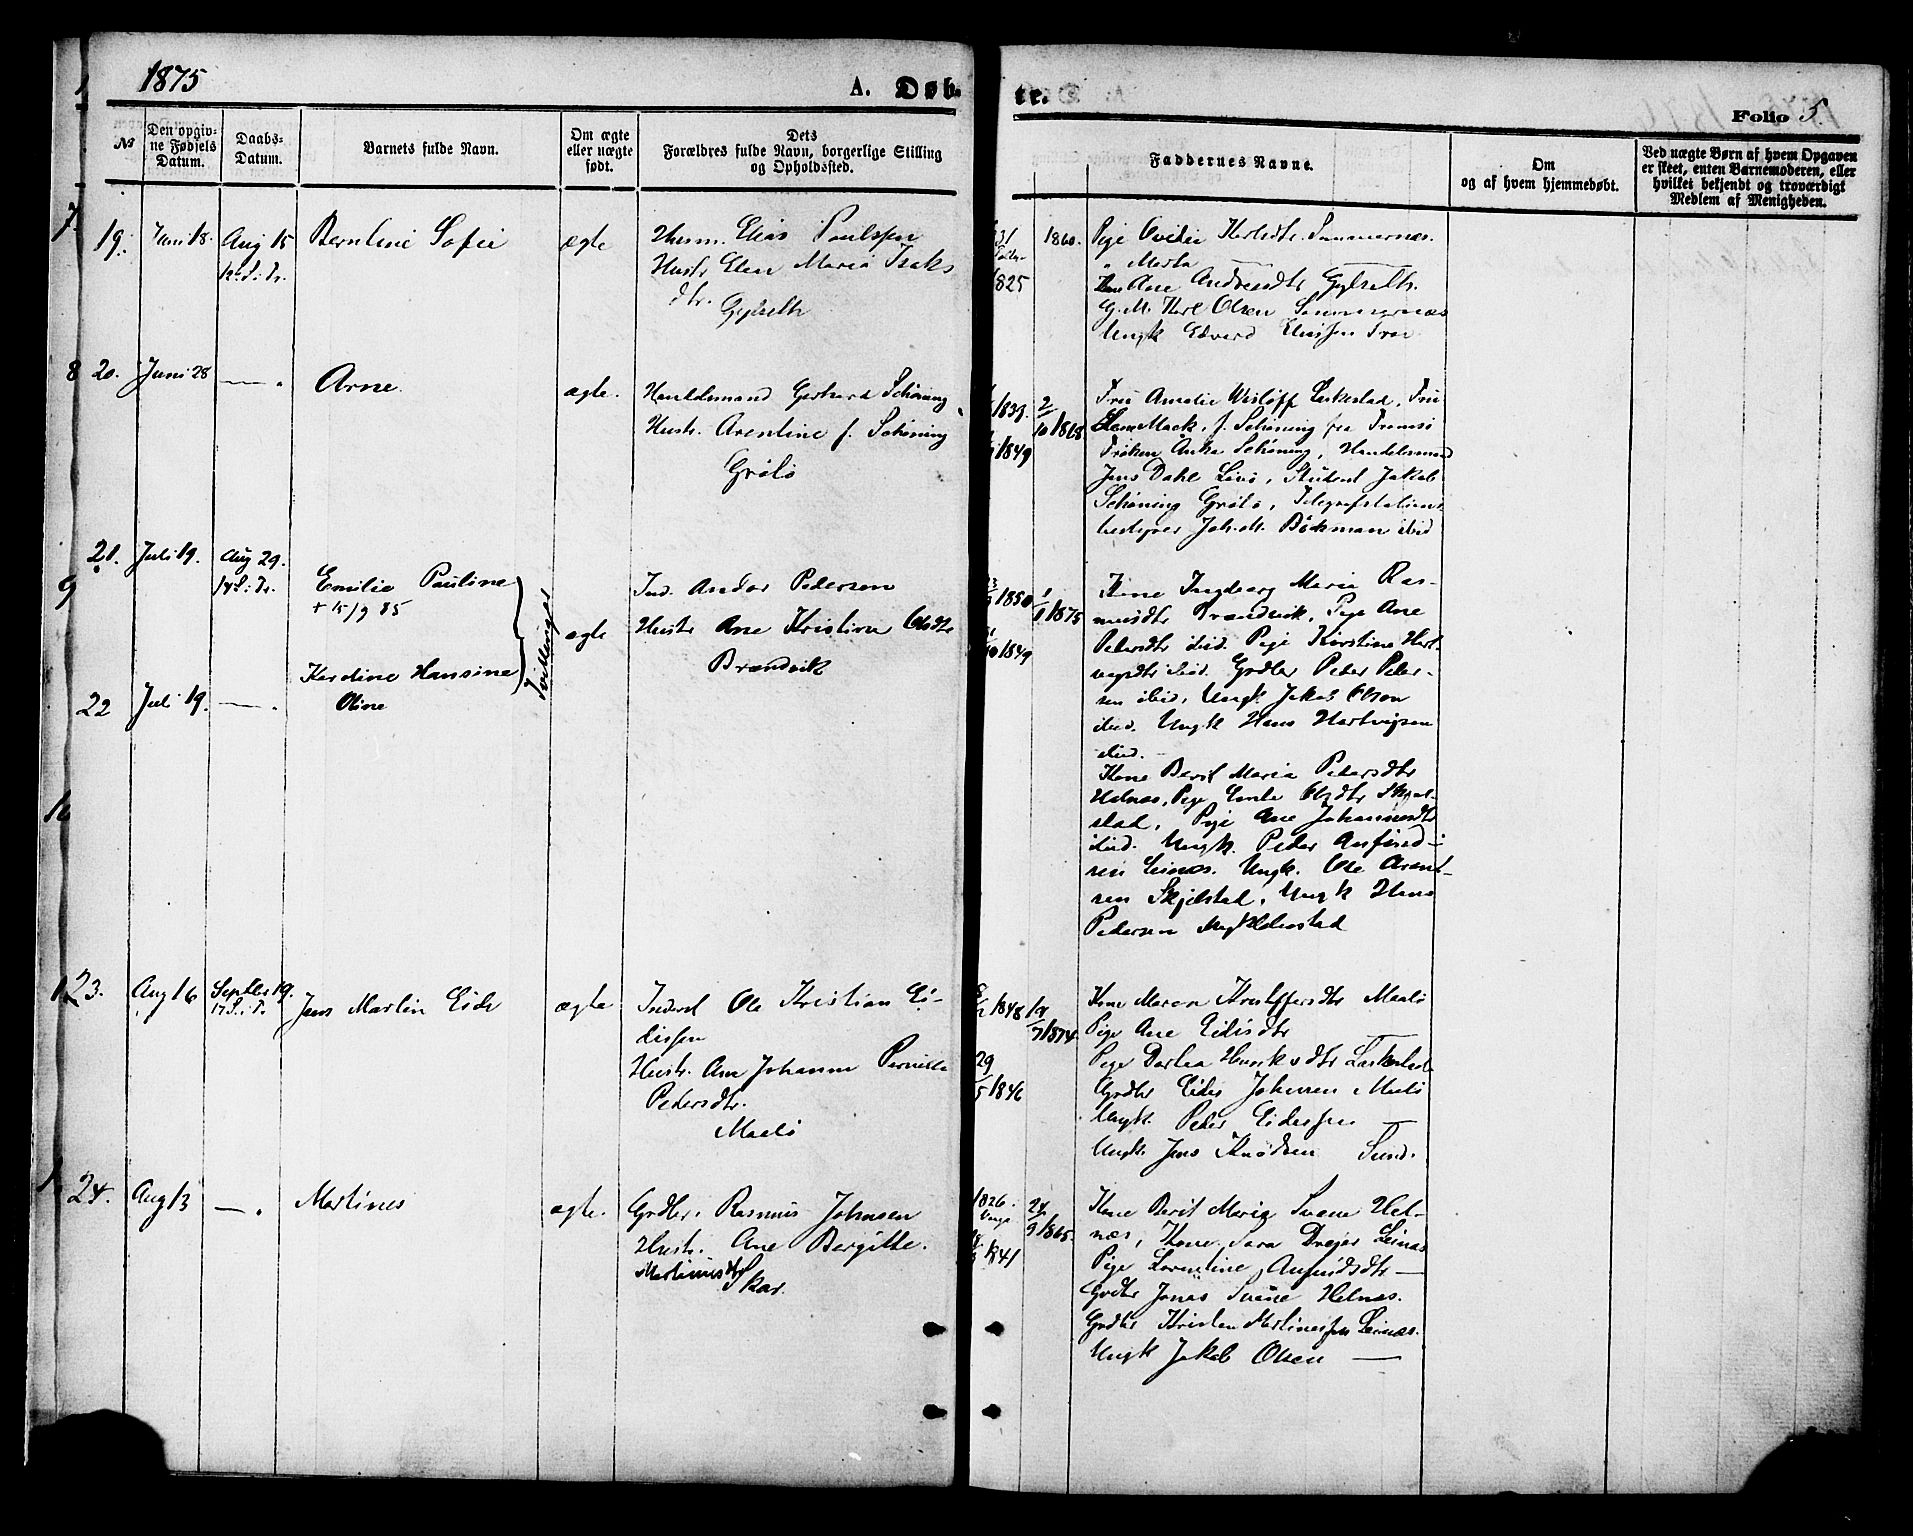 1875
A. Døb-
te.
Folio 5.
№
Den opgiv-
ne Fødsels
Datum.
Daabs-
Datum.
Barnets fulde Navn.
Om ægte
eller uægte
født.
Dets
Forældres fulde Navn, borgerlige Stilling
og Opholdssted.
Faddernes Navne.
Om
og af hvem hjemmedøbt.
Ved uægte Børn af hvem Opgaven
er skeet, enten Barnemoderen, eller
hvilket bekjendt og troværdigt
Medlem af Menigheden.
19. Juni 18. Aug 15
Berntine Sofie
ægte
Husm. Elias Paulssen
Hustr Elen Maria Isaks
dtr.
1825
1860.
Pige
Sommernæs.
" Marta —
Ane Andreasdtr
G.M. Karl Olsen Sommernæs
Ungk Edvard
20. Juni 28 — "
Arne.
ægte.
Handelsmand Gerhard Schøning
Hustr. Arentine f. Schøning
Grøtø
1849
2/10 1868
Fru Amalie Leskestad, Fru
Mack, f. Schøning fra Tromsø
Frøken Anka Schøning, Handelsmand
Jens Dahl Løvø, Student Jakob
Schøning Grøtø, Telegrafstations-
bestyrer Joh. M. Bøckman ibid
21. Juli 19. Aug 29.
14 S. i Tr.
Emilie Pauline
+ 15/9 85
Tvillinger
ægte
Ind. Andor Pedersen
Hustr Ane Kristine Olsdtr
Brændvik
1850
1875
1849
Kone Ingeborg Maria Ras-
musdtr Brændvik, Pige Ane
Pedersdtr ibid. Pige Kirstine Hart-
vigsdtr ibid. Grdbr Peder Peder-
sen ibid, Ungk. Jakob Olsen
ibid. Ungk Hans Hartvigsen
ibid.
22 Juli 19. — "
Kardine Hansine
Oline
Kone Berit Maria Pedersdtr
Helnæs, Pige Olsdtr Skjel-
stad, Pige Ane Johannesdtr
ibid. Ungk. Peder Anfind-
sen Leinæs. Ungk. Ole Arent-
sen Skjelstad, Ungk Hans
Pedersen Mykklebostad
23. Aug 16 Septbr 19.
17 S. i T.
Jens Martin Eide
ægte
Inderst Ole Kristian Ei-
dissen
Hustr. Ane Johanna Pernille
Pedersdtr.
Maalø
1848
7/1874
29/5 1846
Kone Maren Kristoffersdtr Maalø
Pige Ane Eidisdtr
Pige Dortea Henriksdtr Leskestad
Grdbr Eidis Johnsen Maalø
Ungk. Peder Eidessen —
Ungk. Jens Knudsen Sund.
24. Aug 13 — .
Martines
ægte.
Grdbr. Rasmus Johnsen
Hustr. Ane Bergitte
Martinusdtr
Skar.
1826.
1841
24/9 1865.
Kone Berit Maria Svane Hel-
næs, Kone Sara Drejer Leinæs
Pige Lorentine Anfindsdtr —
Grdbr Jonas Svane Helnæs.
Grdbr Kristen Martinessen Leinæs.
Ungk Jakob Olsen —